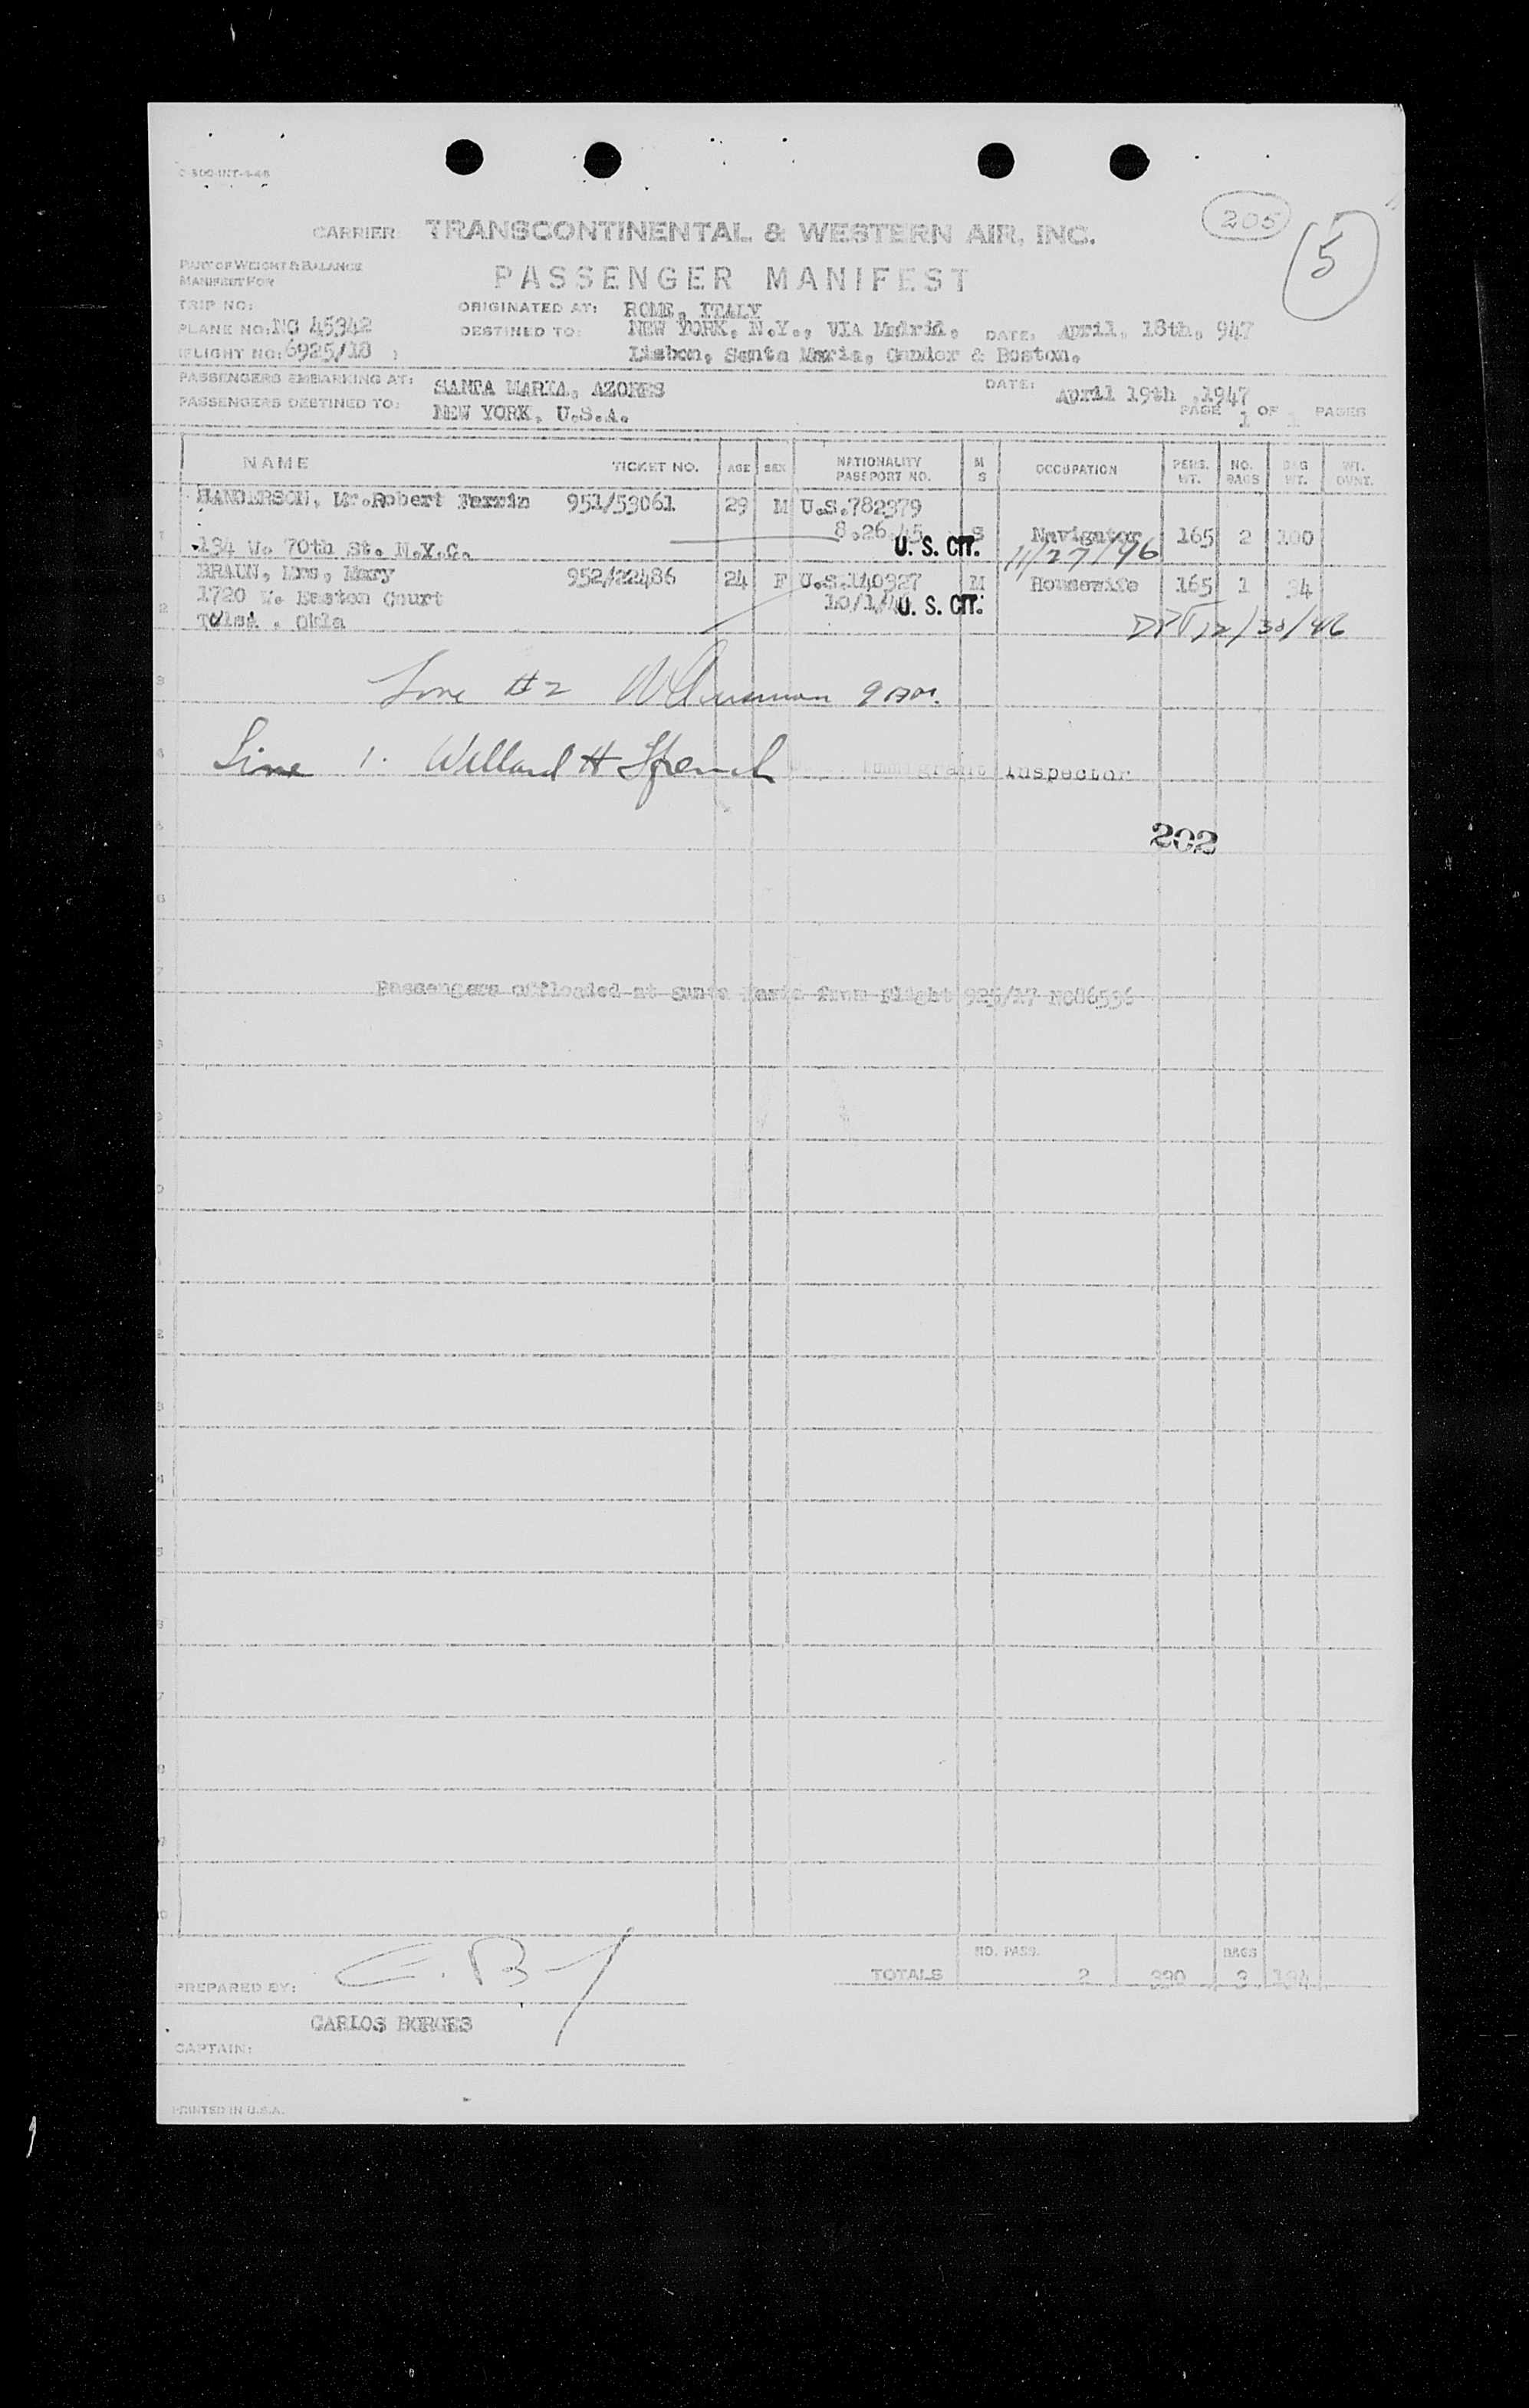 205
5
CARRIER: TRANSCONTINENTAL & WESTERN AIR, INC.
PART OF WEIGHT & BALANCE
MANIFEST FOR
PASSENGER MANIFEST
TRIP NO:
ORIGINATED AT: ROME, ITALY
PLANE NO: NC 45342
DESTINED TO: NEW YORK, N.Y., VIA Madrid, DATE: April, 18th, 947
FLIGHT NO: 6925/18
Lisbon, Santa Maria, Gander & Boston.
PASSENGERS EMBARKING AT: SANTA MARIA, AZORES DATE: April 19th ,1947
PASSENGERS DESTINED TO: NEW YORK, U.S.A. PAGE 1 OF 1 PAGES
NAME TICKET NO. AGE SEX NATIONALITY PASSPORT NO. M S OCCUPATION PERS. WT. NO. BAGS BAG WT. WT. OVNT.
HANDERSON, Mr. Robert 951/53061 29 M U.S.782379
8.26.45 S Navigator 165 2 100
1 134 W. 70th St. N.Y.C. U. S. CIT. 11/27/46
BRAUN, Mrs, Mary 952/22486 24 F U.S.140327 M Housewife 165 1 34
1720 W. Easton Court U. S. CIT.
2 Tulsa . Okla 12/30/46
3 Line #2 9 AM.
4 Line 1. Willard H French Immigrant Inspector
202
Passengers offloaded at Santa Maria from Flight 925/17 NC86536
NO. PASS. BAGS
TOTALS 2 330 3 134
PREPARED BY:
CARLOS BORGES
CAPTAIN:
PRINTED IN U.S.A.